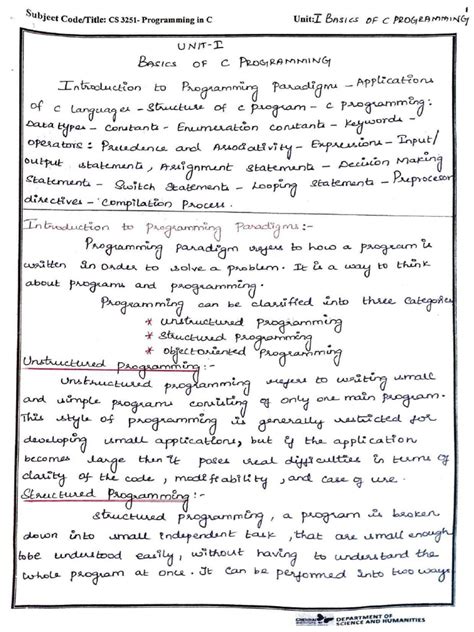 Subject Code/Title: CS 3251- Programming in C Unit: I BASICS OF C PROGRAMMING
1
UNIT-I
BASICS OF C PROGRAMMING
Introduction to Programming Paradigms - Applications
of C Languages - Structure of C program - C programming:
Data types - constants - Enumeration constants - keywords -
operators: Precedence and Associativity - Expressions - Input/
output statements, Assignment statements - Decision Making
Statements - Switch Statements - Looping Statements - Preprocessor
directives - Compilation process.
Introduction to programming Paradigms:-
Programming Paradigm refers to how a program is
written in order to solve a problem. It is a way to think
about programs and programming.
Programming can be classified into three categories
* Unstructured Programming
* Structured Programming
* Object oriented Programming
Unstructured Programming:-
Unstructured programming refers to writing small
and simple programs consisting of only one main program.
This style of programming is generally restricted for
developing small applications, but if the application
becomes large then it poses real difficulties in terms of
clarity of the code, modifiability, and ease of use.
Structured Programming:-
Structured programming, a program is broken
down into small independent task, that are small enough
tobe understood easily, without having to understand the
whole program at once. It can be performed into two ways
DEPARTMENT OF
SCIENCE AND HUMANITIES